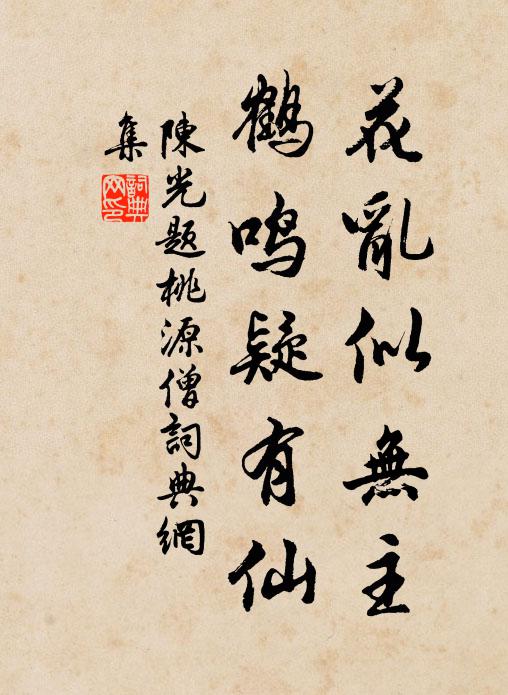 花亂似無主
鶴鳴疑有仙
陳光題桃源僧詞典網
集
詞典
网印